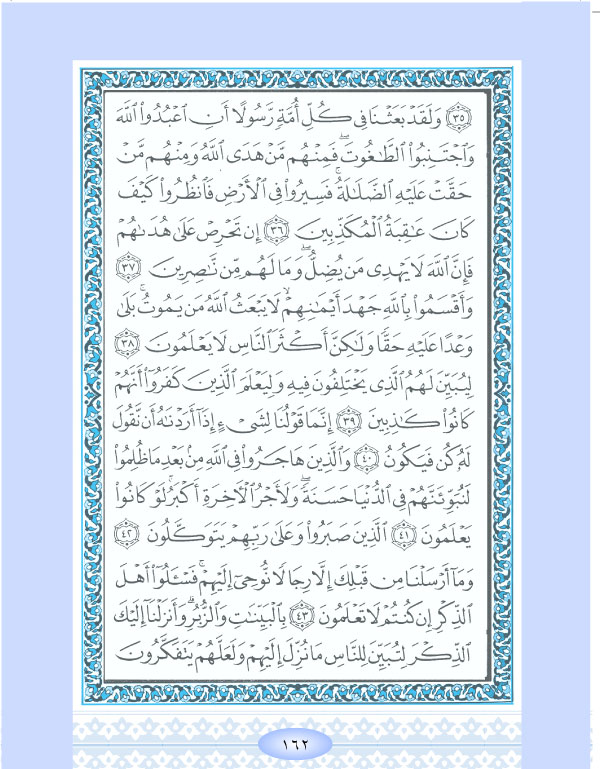 ﴿٣٥﴾ وَلَقَدْ بَعَثْنَا فِى كُلِّ أُمَّةٍ رَّسُولًا أَنِ ٱعْبُدُوا۟ ٱللَّهَ
وَٱجْتَنِبُوا۟ ٱلطَّٰغُوتَ ۖ فَمِنْهُم مَّنْ هَدَى ٱللَّهُ وَمِنْهُم مَّنْ
حَقَّتْ عَلَيْهِ ٱلضَّلَٰلَةُ ۚ فَسِيرُوا۟ فِى ٱلْأَرْضِ فَٱنظُرُوا۟ كَيْفَ
كَانَ عَٰقِبَةُ ٱلْمُكَذِّبِينَ ﴿٣٦﴾ إِن تَحْرِصْ عَلَىٰ هُدَىٰهُمْ
فَإِنَّ ٱللَّهَ لَا يَهْدِى مَن يُضِلُّ ۖ وَمَا لَهُم مِّن نَّٰصِرِينَ ﴿٣٧﴾
وَأَقْسَمُوا۟ بِٱللَّهِ جَهْدَ أَيْمَٰنِهِمْ ۙ لَا يَبْعَثُ ٱللَّهُ مَن يَمُوتُ ۚ بَلَىٰ
وَعْدًا عَلَيْهِ حَقًّا وَلَٰكِنَّ أَكْثَرَ ٱلنَّاسِ لَا يَعْلَمُونَ ﴿٣٨﴾
لِيُبَيِّنَ لَهُمُ ٱلَّذِى يَخْتَلِفُونَ فِيهِ وَلِيَعْلَمَ ٱلَّذِينَ كَفَرُوٓا۟ أَنَّهُمْ
كَانُوا۟ كَٰذِبِينَ ﴿٣٩﴾ إِنَّمَا قَوْلُنَا لِشَىْءٍ إِذَآ أَرَدْنَٰهُ أَن نَّقُولَ
لَهُۥ كُن فَيَكُونُ ﴿٤٠﴾ وَٱلَّذِينَ هَاجَرُوا۟ فِى ٱللَّهِ مِنۢ بَعْدِ مَا ظُلِمُوا۟
لَنُبَوِّئَنَّهُمْ فِى ٱلدُّنْيَا حَسَنَةً ۖ وَلَأَجْرُ ٱلْءَاخِرَةِ أَكْبَرُ ۚ لَوْ كَانُوا۟
يَعْلَمُونَ ﴿٤١﴾ ٱلَّذِينَ صَبَرُوا۟ وَعَلَىٰ رَبِّهِمْ يَتَوَكَّلُونَ ﴿٤٢﴾
وَمَآ أَرْسَلْنَا مِن قَبْلِكَ إِلَّا رِجَالًا نُّوحِىٓ إِلَيْهِمْ ۚ فَسْـَٔلُوٓا۟ أَهْلَ
ٱلذِّكْرِ إِن كُنتُمْ لَا تَعْلَمُونَ ﴿٤٣﴾ بِٱلْبَيِّنَٰتِ وَٱلزُّبُرِ ۗ وَأَنزَلْنَآ إِلَيْكَ
ٱلذِّكْرَ لِتُبَيِّنَ لِلنَّاسِ مَا نُزِّلَ إِلَيْهِمْ وَلَعَلَّهُمْ يَتَفَكَّرُونَ
١٦٢